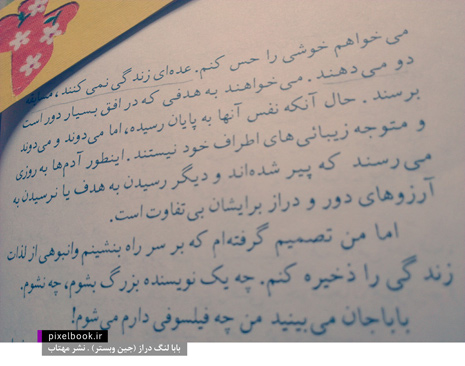 می‌خواهم خوشی را حس کنم. عده‌ای زندگی نمی‌کنند، مسابقه
دو می‌دهند. می‌خواهند به هدفی که در افق بسیار دور است
برسند. حال آنکه نفس آنها به پایان رسیده، اما می‌دوند و می‌دوند
و متوجه زیبائی‌های اطراف خود نیستند. اینطور آدم‌ها به روزی
می‌رسند که پیر شده‌اند و دیگر رسیدن به هدف یا نرسیدن به
آرزوهای دور و دراز برایشان بی‌تفاوت است.
اما من تصمیم گرفته‌ام که بر سر راه بنشینم وانبوهی از لذات
زندگی را ذخیره کنم. چه یک نویسنده بزرگ بشوم، چه نشوم.
باباجان می‌بینید من چه فیلسوفی دارم می‌شوم!
pixelbook.ir
بابا لنگ دراز (جین وبستر) . نشر مهتاب